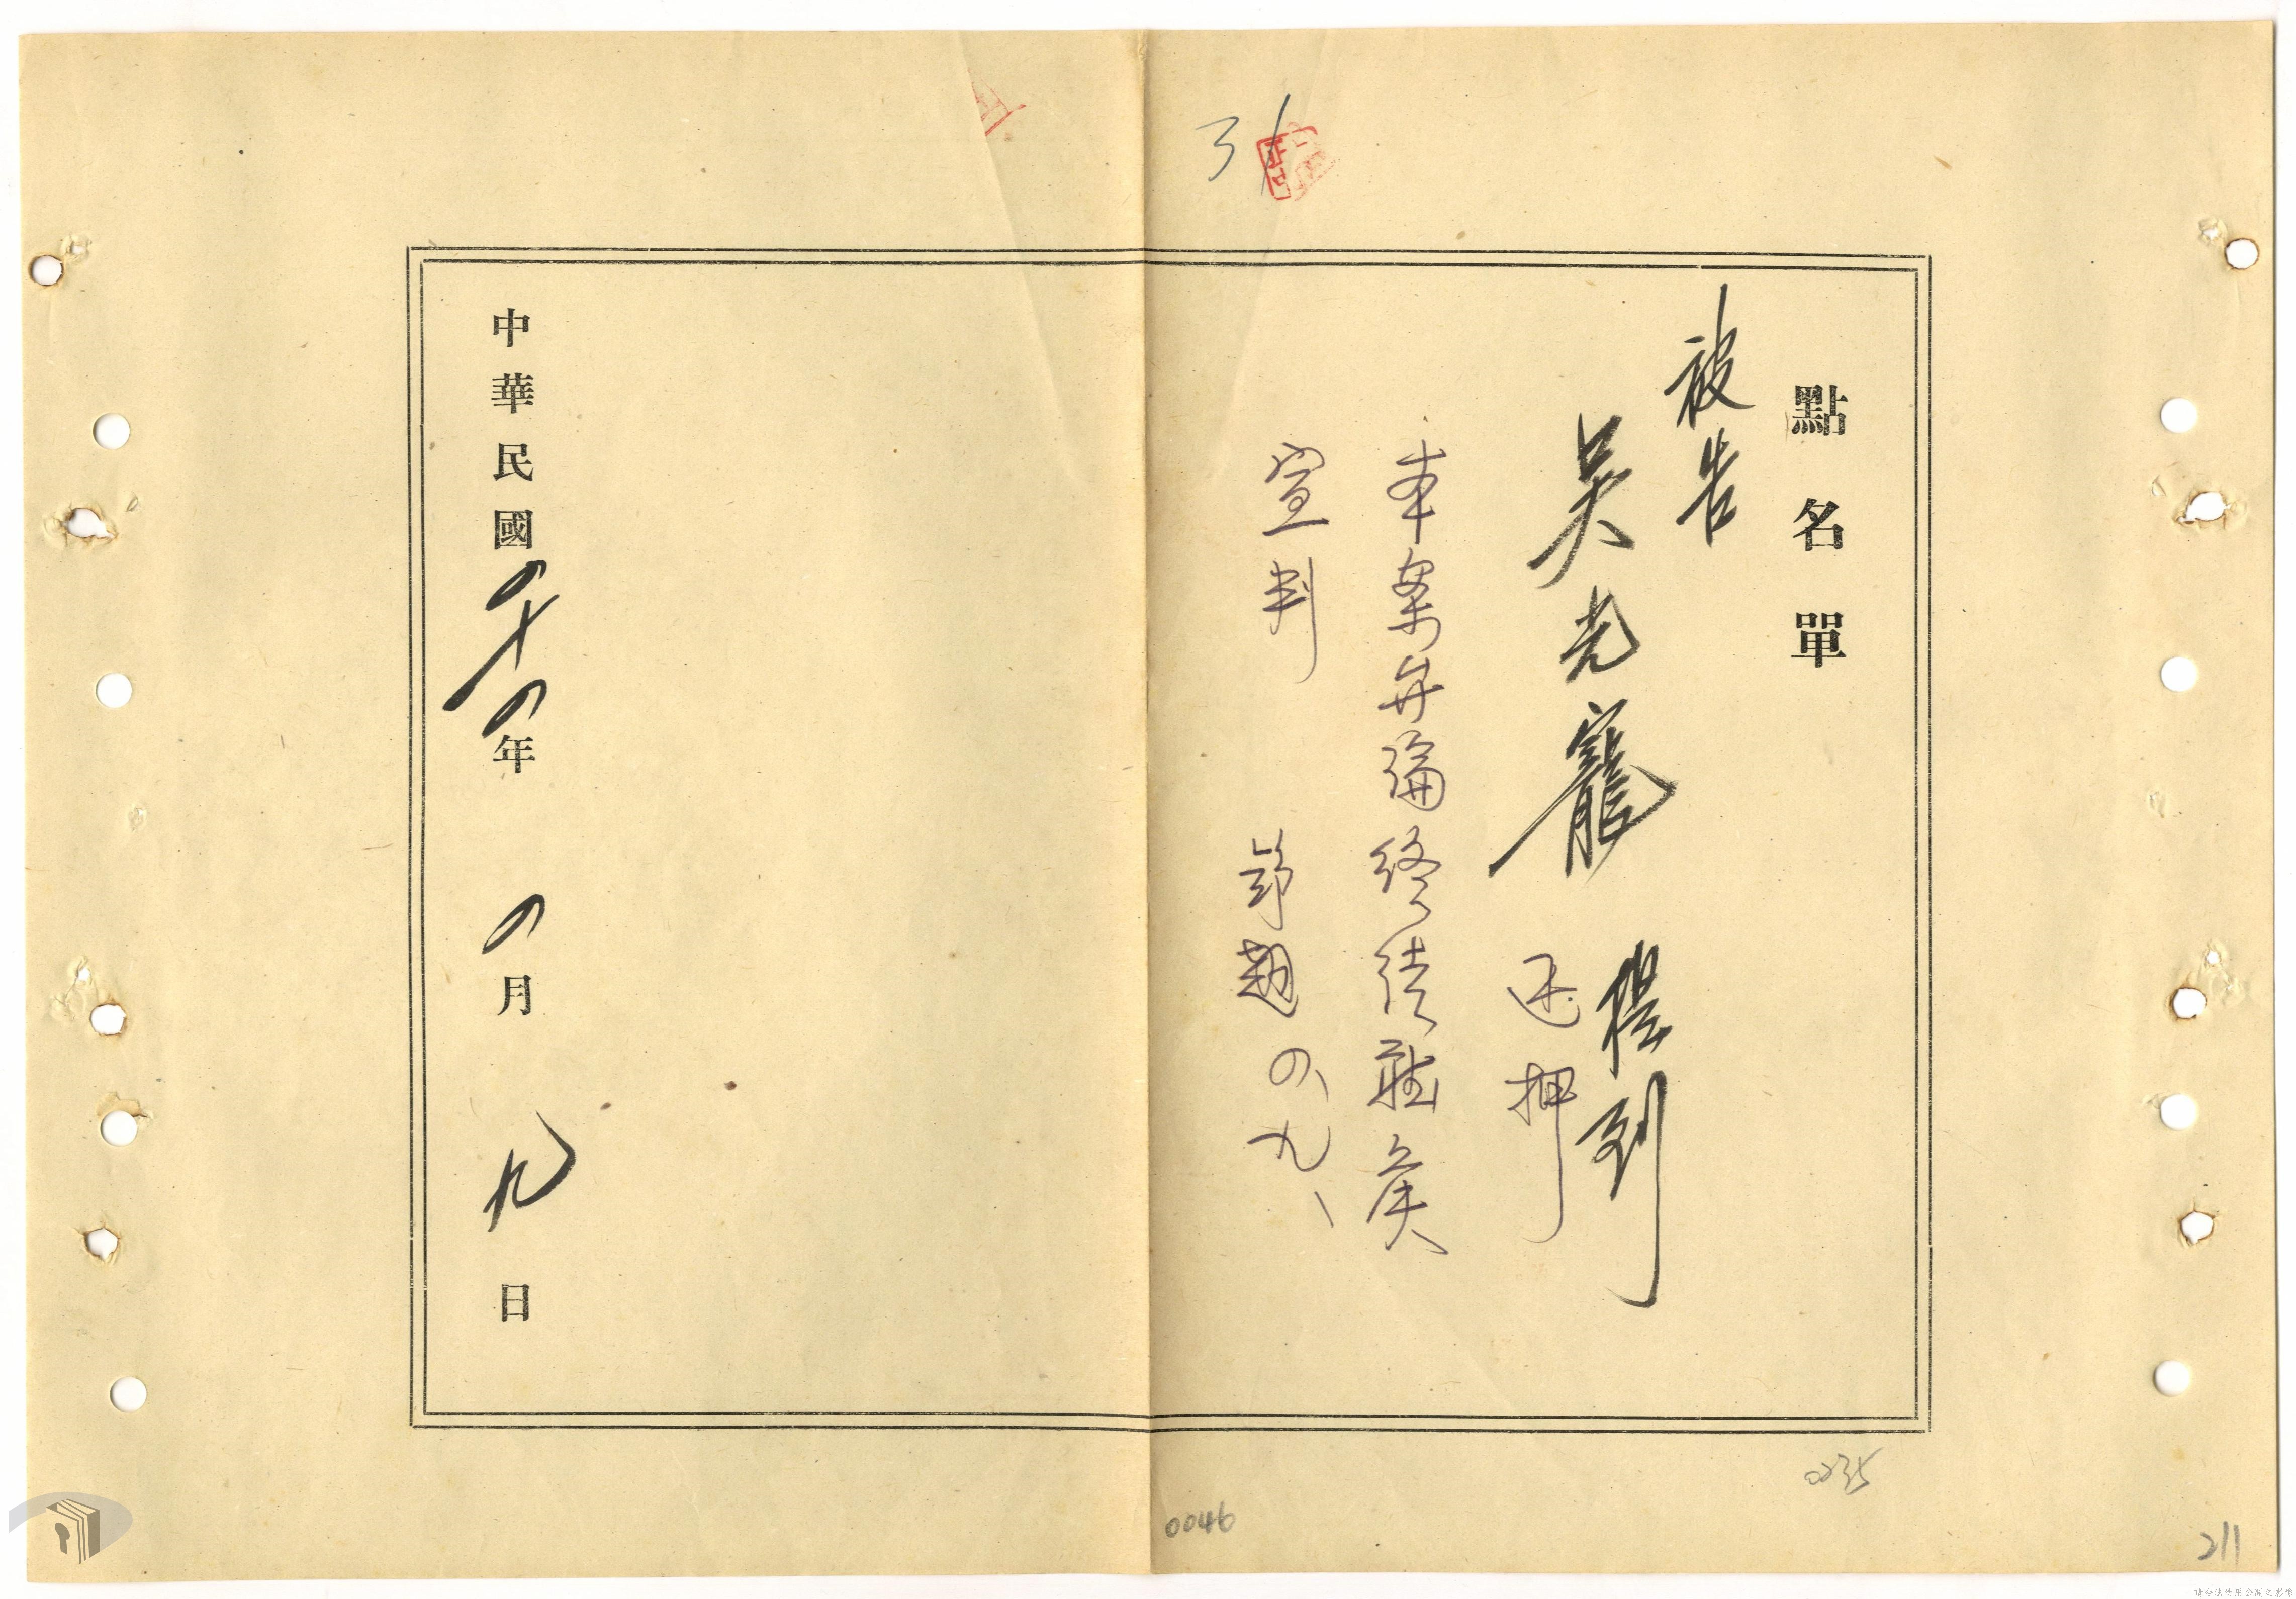 31
點名單
被告
吳光寵 提到
还押
本案弁論終結聽候
宣判
四、九、
中華民國四十四年四月九日
0235
0046
211
請合法使用公開之影像